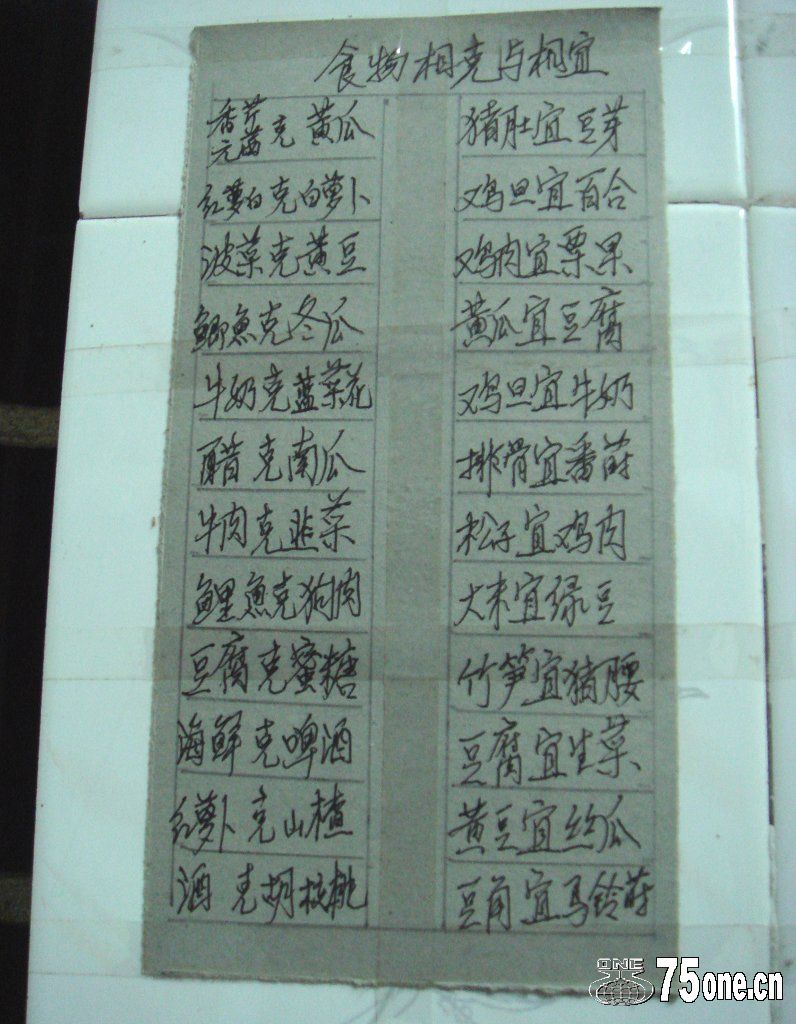 食物相克与相宜
香芹
元茜克 黄瓜
红萝白克白萝卜
波菜克黄豆
鲫魚克冬瓜
牛奶克蓝菜花
醋 克南瓜
牛肉克韭菜
鲤魚克狗肉
豆腐克蜜糖
海鲜克啤酒
红萝卜克山楂
酒 克胡核桃
猪肚宜豆芽
鸡旦宜百合
鸡肉宜栗果
黄瓜宜豆腐
鸡旦宜牛奶
排骨宜番茄
松子宜鸡肉
大米宜绿豆
竹笋宜猪腰
豆腐宜生菜
黄豆宜丝瓜
豆角宜马铃茄
ONE 75one.cn